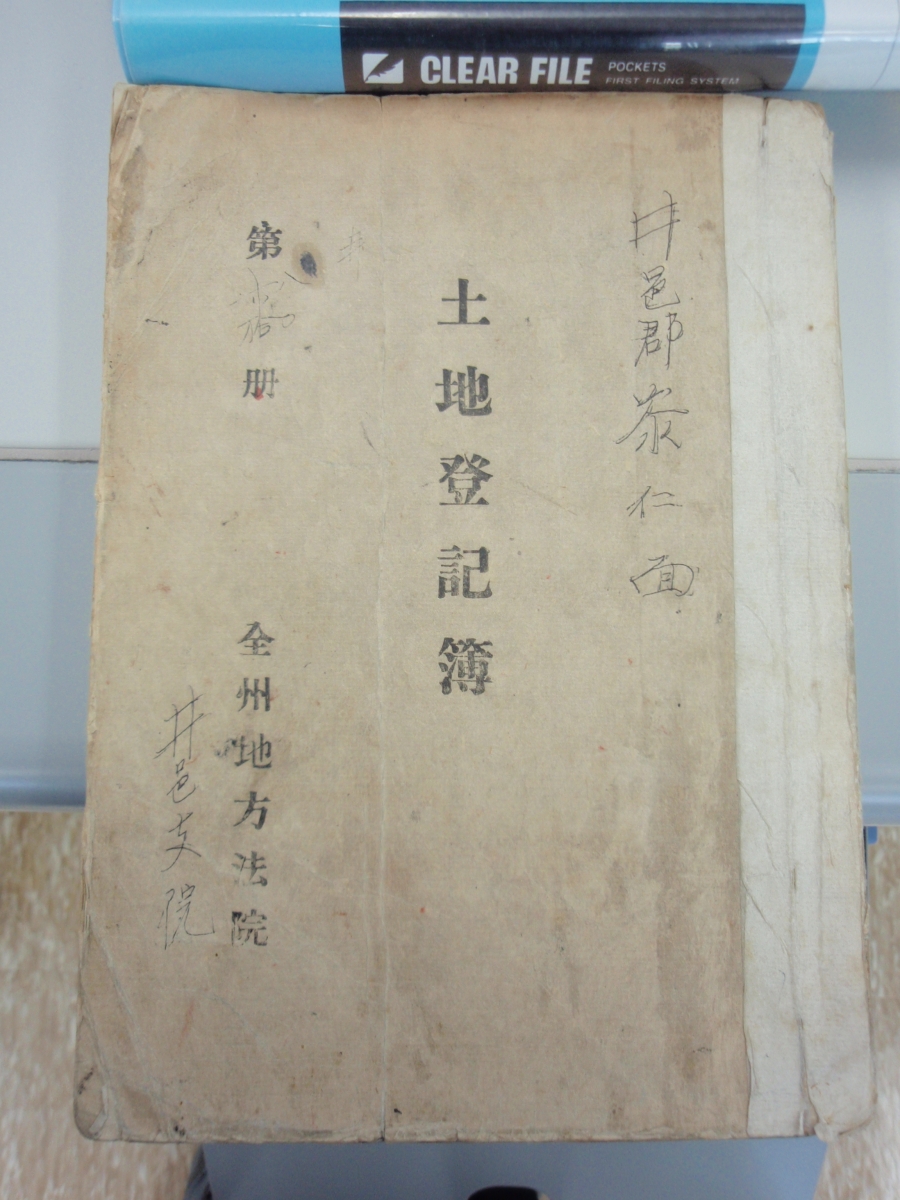 CLEAR FILE POCKETS
FIRST FILING SYSTEM
井邑郡泰仁面
土地登記簿
第 册
全州地方法院
井邑支院